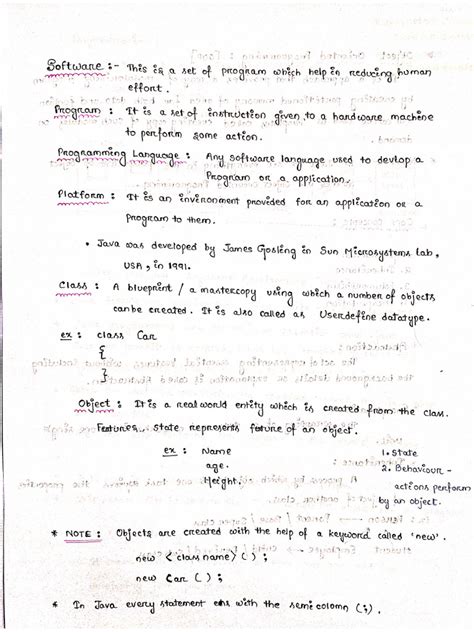 Software :- This is a set of program which help in reducing human
effort.
Program : It is a set of instruction given to a hardware machine
to perform some action.
Programming Language : Any software language used to devlop a
Program or a application.
Platform : It is an invironment provided for an application or a
Program to them.
• Java was developed by James Gosling in Sun Microsystems Lab,
USA, in 1991.
Class : A blueprint / a mastercopy using which a number of objects
can be created. It is also called as Userdefine datatype.
ex : class Car
{
}
Object : It is a real world entity which is created from the class.
Features, state represents feature of an object.
ex : Name 1. State
age. 2. Behaviour -
Height. actions perform
by an object.
* NOTE : Objects are created with the help of a keyword called 'new'.
new <class name> ( ) ;
new Car ( ) ;
* In Java every statement ends with the semicolomn (;).